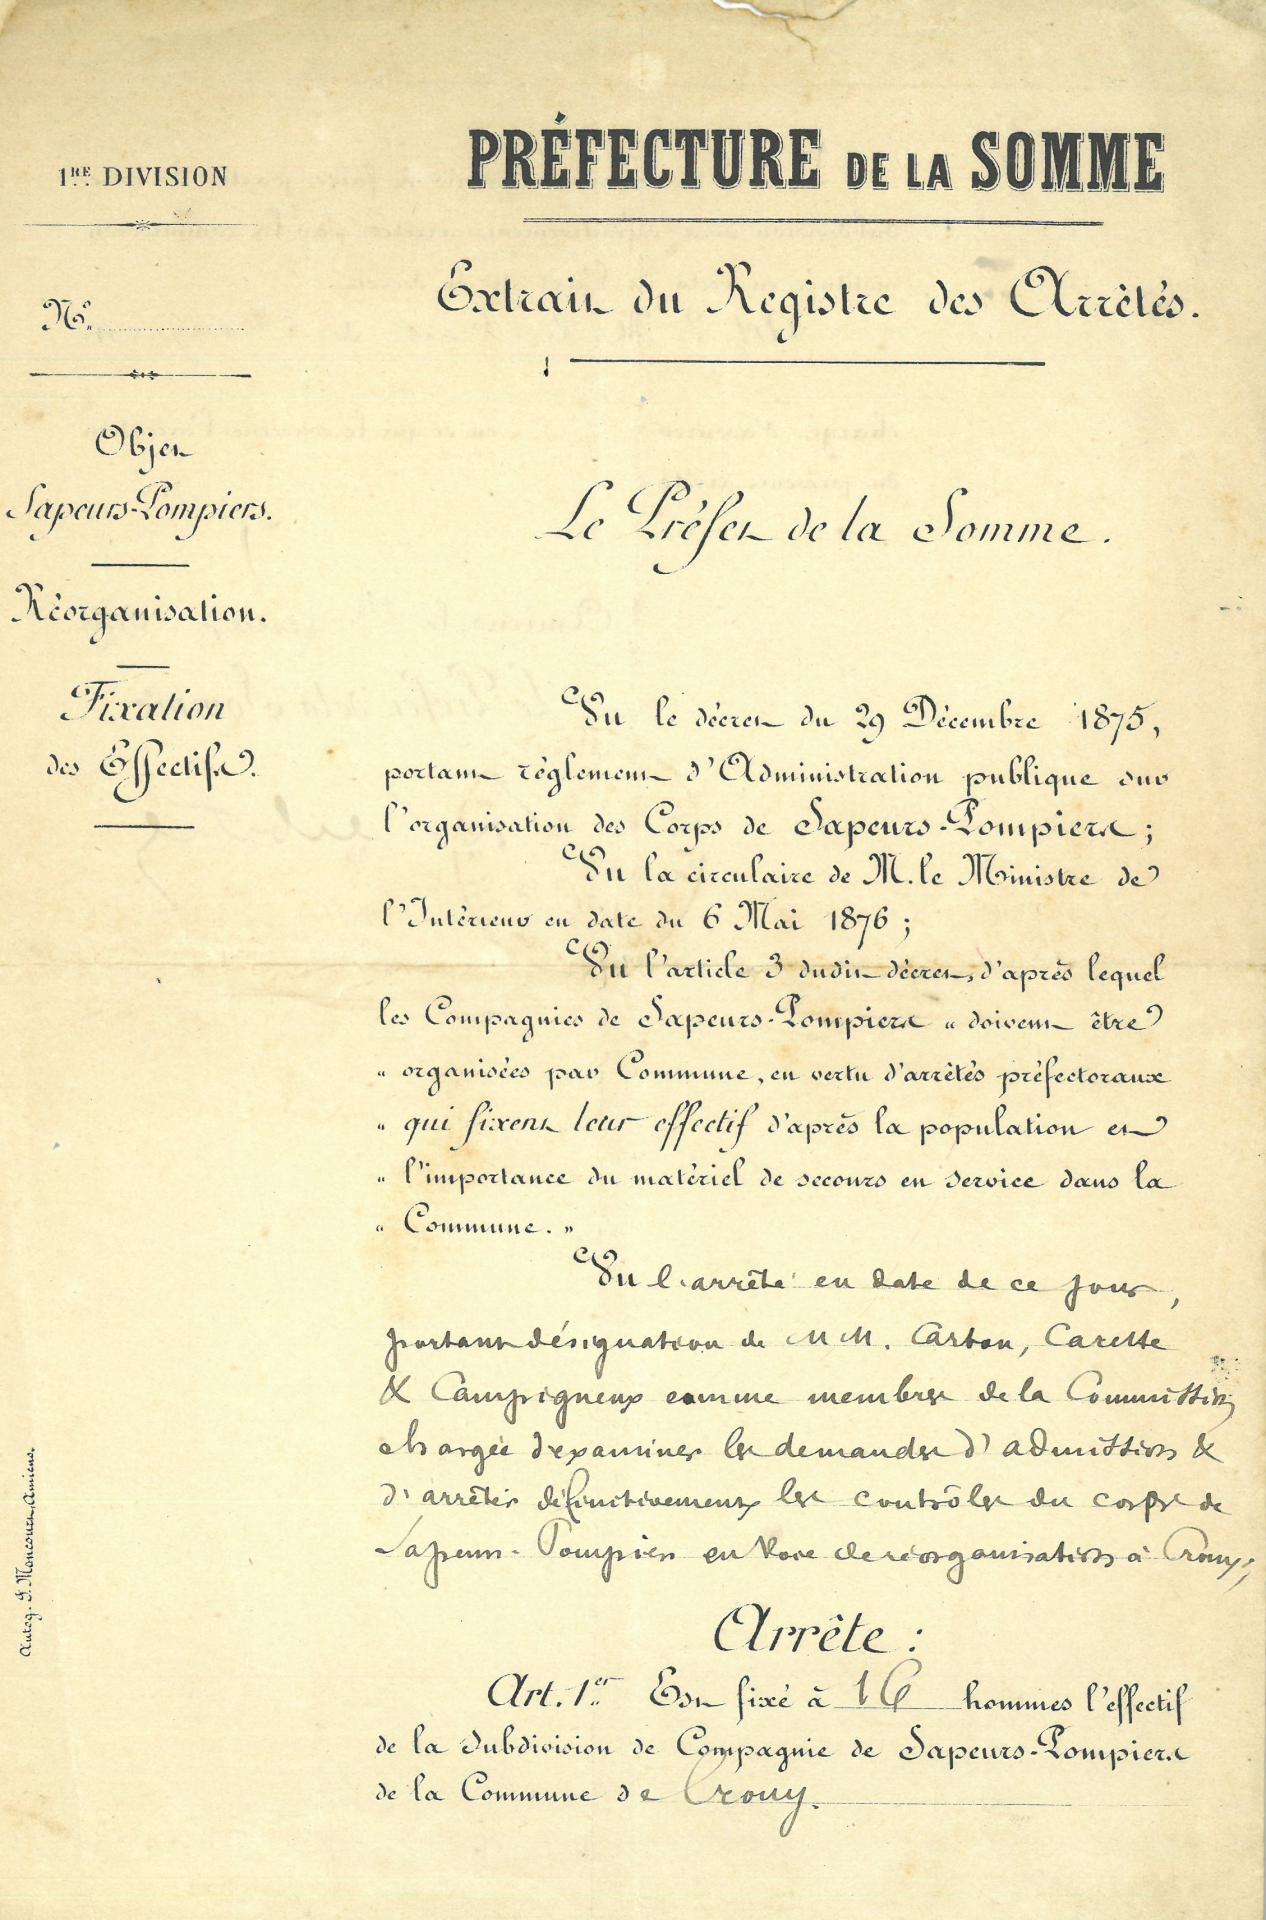 PRÉFECTURE DE LA SOMME
1RE DIVISION
Extrait du Registre des Arrêtés.
No.
Objet
Sapeurs-Pompiers.
Réorganisation.
Fixation
des Effectifs.
Le Préfet de la Somme.
Vu le décret du 29 Décembre 1875,
portant règlement d'Administration publique sur
l'organisation des Corps de Sapeurs-Pompiers;
Vu la circulaire de M. le Ministre de
l'Intérieur en date du 6 Mai 1876;
Vu l'article 3 dudit décret, d'après lequel
les Compagnies de Sapeurs-Pompiers « doivent être
« organisées par Commune, en vertu d'arrêtés préfectoraux
« qui fixent leur effectif d'après la population et
« l'importance du matériel de secours en service dans la
« Commune. »
Vu l'arrêté en date de ce jour,
portant désignation de MM. Carton, Carette
& Campigneux comme membres de la Commission
chargée d'examiner les demandes d'admission &
d'arrêter définitivement les contrôles du corps de
Sapeurs-Pompiers en voie de réorganisation à Crouy,
Arrête :
Art. 1er. Est fixé à 16 hommes l'effectif
de la Subdivision de Compagnie de Sapeurs-Pompiers
de la Commune de Crouy.
Autog. Amiens.